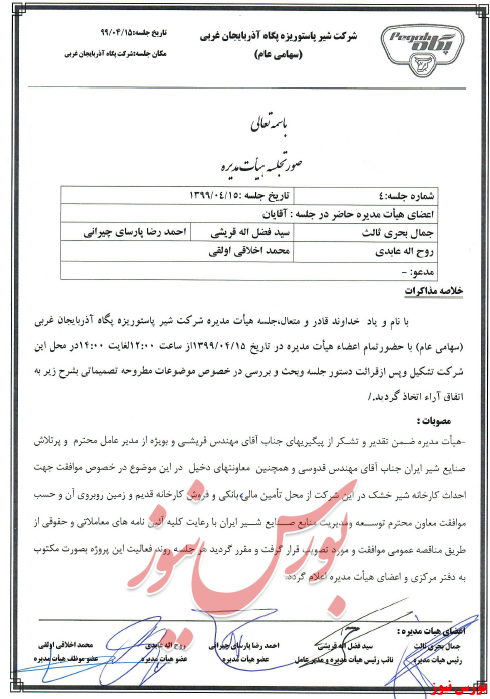 Pegah
پگاه
شرکت شیر پاستوریزه پگاه آذربایجان غربی
(سهامی عام)
تاریخ جلسه: ۹۹/۰۴/۱۵
مکان جلسه: شرکت پگاه آذربایجان غربی
باسمه تعالی
صورتجلسه هیأت مدیره
شماره جلسه: ۴ تاریخ جلسه: ۱۳۹۹/۰۴/۱۵
اعضای هیأت مدیره حاضر در جلسه : آقایان
جمال بحری ثالث سید فضل اله قریشی احمد رضا پارسای چیرانی
روح اله عابدی محمد اخلاقی اولقی
مدعو: -
خلاصه مذاکرات
با نام و یاد خداوند قادر و متعال،جلسه هیأت مدیره شرکت شیر پاستوریزه پگاه آذربایجان غربی
(سهامی عام) با حضورتمام اعضاء هیأت مدیره در تاریخ ۱۳۹۹/۰۴/۱۵از ساعت ۱۲:۰۰لغایت ۱۴:۰۰در محل این
شرکت تشکیل وپس ازقرائت دستور جلسه وبحث و بررسی در خصوص موضوعات مطروحه تصمیماتی بشرح زیر به
اتفاق آراء اتخاذ گردید./
مصوبات :
-هیأت مدیره ضمن تقدیر و تشکر از پیگیریهای جناب آقای مهندس قریشی و بویژه از مدیر عامل محترم و پرتلاش
صنایع شیر ایران جناب آقای مهندس قدوسی و همچنین معاونتهای دخیل در این موضوع در خصوص موافقت جهت
احداث کارخانه شیر خشک در این شرکت از محل تأمین مالی بانکی و فروش کارخانه قدیم و زمین روبروی آن و حسب
موافقت معاون محترم توسعه ومدیریت منابع صنایع شیر ایران با رعایت کلیه آئین نامه های معاملاتی و حقوقی از
طریق مناقصه عمومی موافقت و مورد تصویب قرار گرفت و مقرر گردید هر جلسه روند فعالیت این پروژه بصورت مکتوب
به دفتر مرکزی و اعضای هیأت مدیره اعلام گردد.
بورس نیوز
اعضای هیأت مدیره :
جمال بحری ثالث سید فضل اله قریشی احمد رضا پارسای چیرانی روح اله عابدی محمد اخلاقی اولقی
رئیس هیأت مدیره نائب رئیس هیأت مدیره و مدیر عامل عضو هیأت مدیره عضو هیأت مدیره عضو موظف هیأت مدیره
بورس نیوز